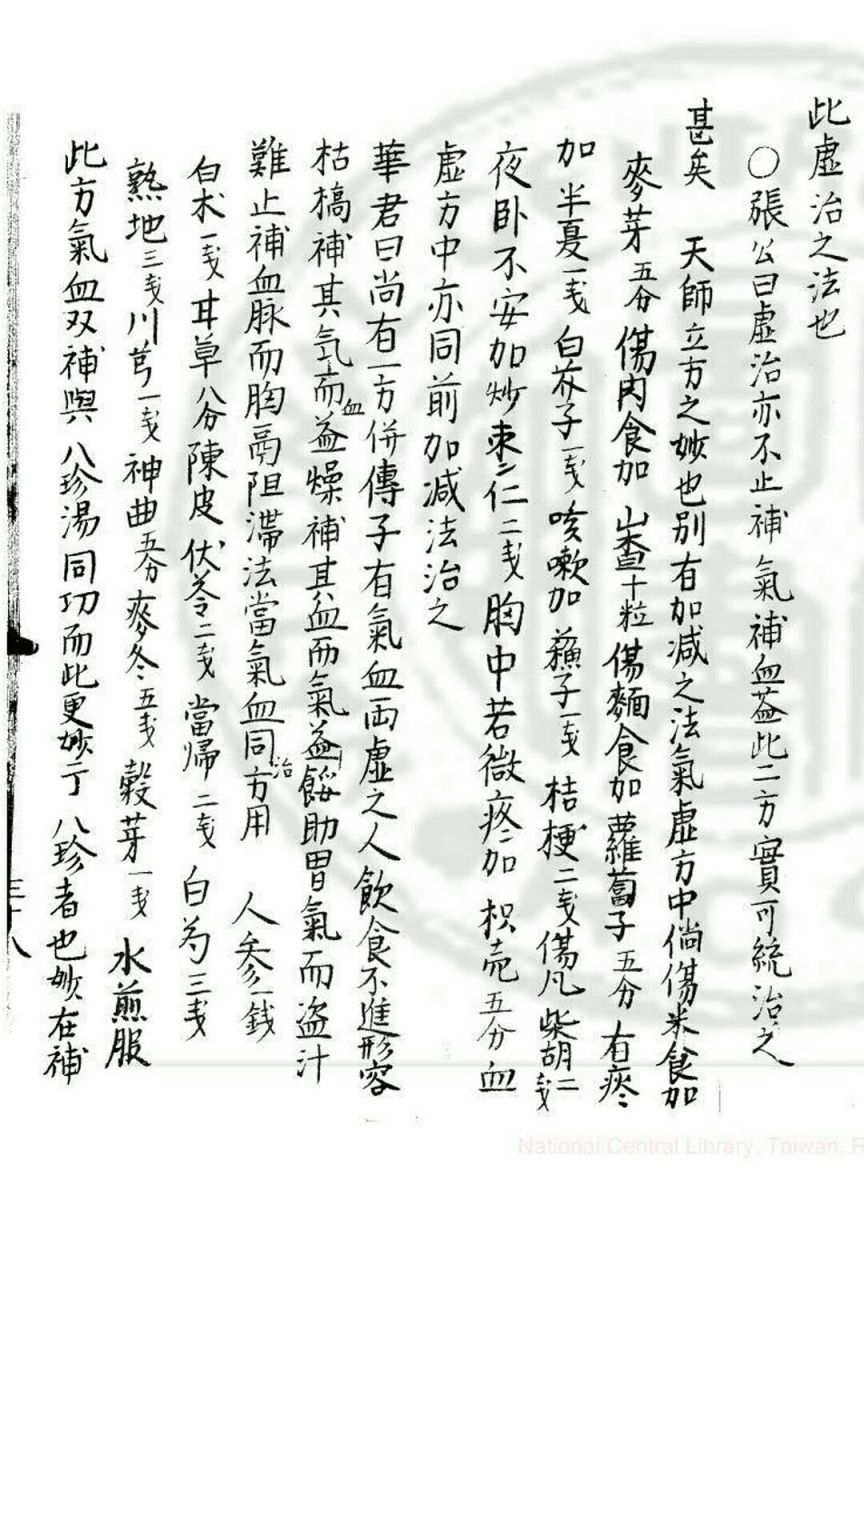 此虛治之法也
○張公曰虛治亦不止補氣補血葢此二方實可統治之
甚矣 天師立方之妙也别有加减之法氣虛方中倘傷米食加
麥芽五分傷肉食加山查十粒傷麵食加蘿蔔子五分有痰
加半夏一戔白芥子一戔咳嗽加蘓子一戔桔梗二戔傷风柴胡二戔
夜卧不安加炒枣仁二戔胸中若微疼加枳壳五分血
虛方中亦同前加减法治之
華君曰尚有一方併傳子有氣血両虛之人飲食不進形容
枯槁補其氣而血益燥補其血而氣益餒助胃氣而盗汁
難止補血脉而胸鬲阻滯法當氣血同治方用 人參一錢
白术一戔甘草八分陳皮伏苓二戔當帰二戔白芍三戔
熟地三戔川芎一戔神曲五分麥冬五戔穀芽一戔水煎服
此方氣血双補與八珍湯同功而此更妙于八珍者也妙在補
三十八
National Central Library, Taiwan, R